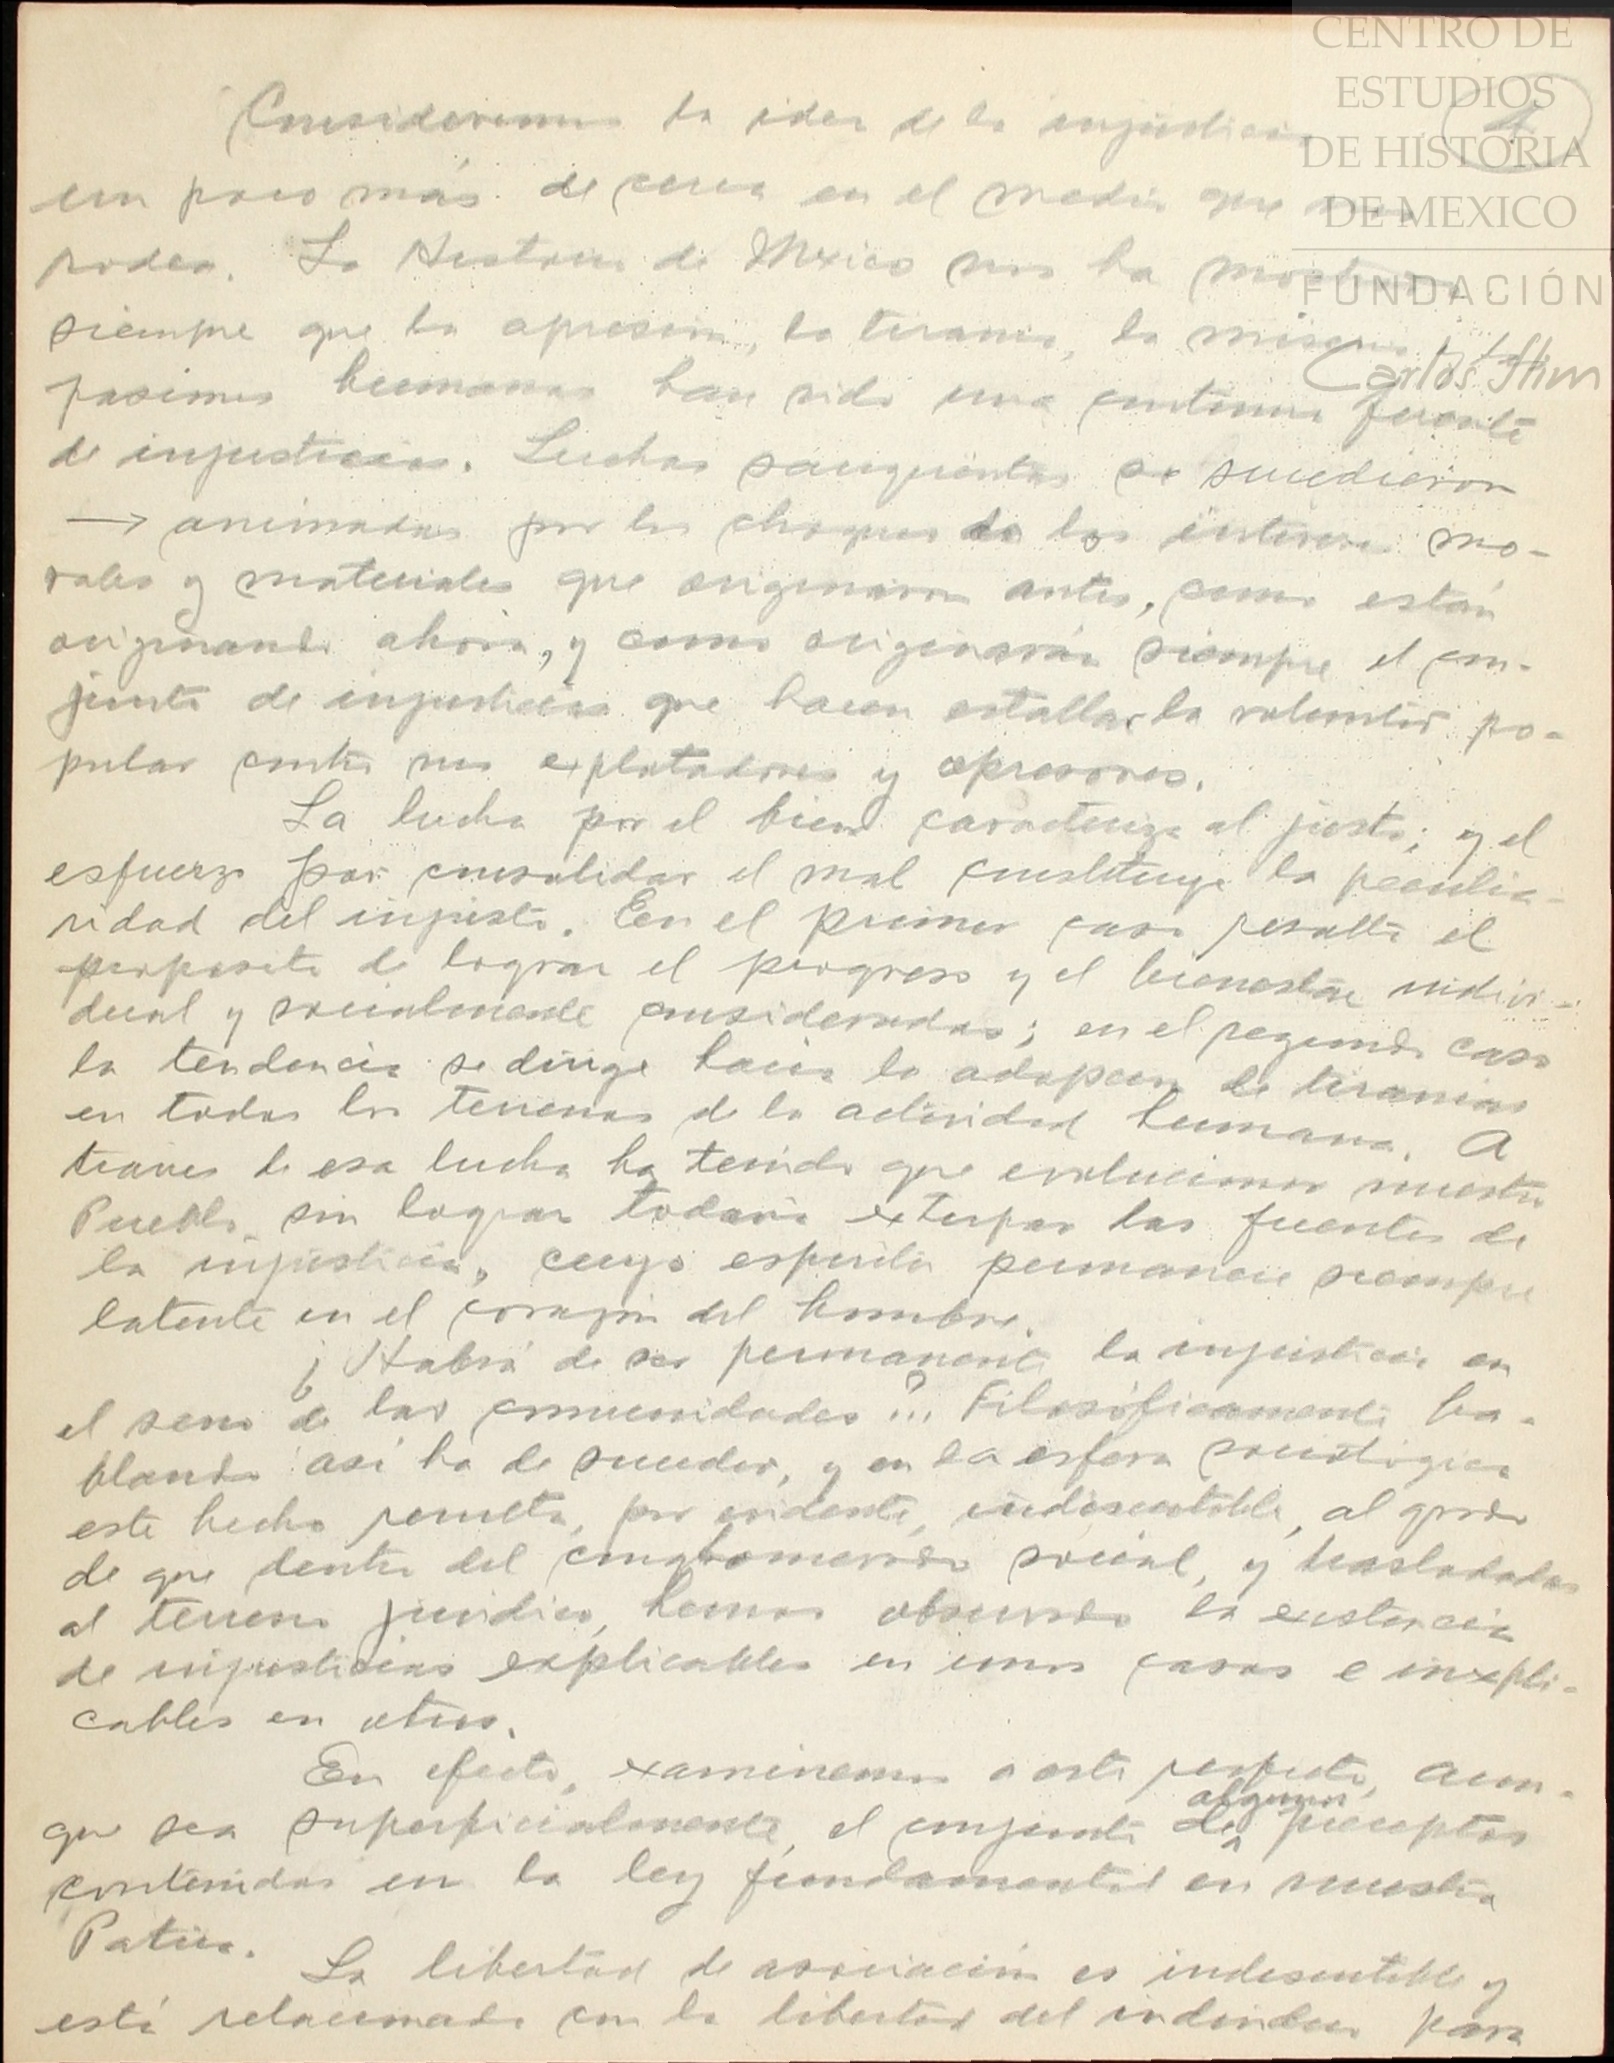 CENTRO DE
ESTUDIOS
DE HISTORIA
DE MEXICO
FUNDACIÓN
Carlos Slim
Consideremos la idea de la injusticia
un poco más de cerca en el medio que nos
rodea. La Historia de Mexico nos ha mostrado
siempre que la opresion, la tirania, la miseria y las
pasiones humanas han sido una continua fuente
de injusticias. Luchas sangrientas se sucedieron
→ animadas por los choques de los intereses mo-
rales y materiales que originaron antes, como están
originando ahora, y como originarán siempre el con-
junto de injusticias que hacen estallar la voluntad po-
pular contra sus explotadores y opresores.
La lucha por el bien caracteriza al justo; y el
esfuerzo por consolidar el mal constituye la peculia-
ridad del injusto. En el primer caso resalta el
proposito de lograr el progreso y el bienestar indivi-
dual y socialmente considerados; en el segundo caso
la tendencia se dirige hacia la adopcion de tiranias
en todos los terrenos de la actividad humana. A
traves de esa lucha ha tenido que evolucionar nuestro
Pueblo sin lograr todavia extirpar las fuentes de
la injusticia, cuyo espiritu permanece siempre
latente en el corazón del hombre.
¿Habrá de ser permanente la injusticia en
el seno de las comunidades?... Filosóficamente ha-
blando así ha de suceder, y en la esfera sociologica
este hecho resulta, por evidente, indiscutible, al grado
de que dentro del conglomerado social, y trasladados
al terreno juridico, hemos observado la existencia
de injusticias explicables en unos casos e inexpli-
cables en otros.
En efecto, examinemos a este respecto, aun-
que sea superficialmente, el conjunto de algunos preceptos
contenidos en la ley fundamental en nuestra
Patria.
La libertad de asociación es indiscutible y
está relacionada con la libertad del individuo para